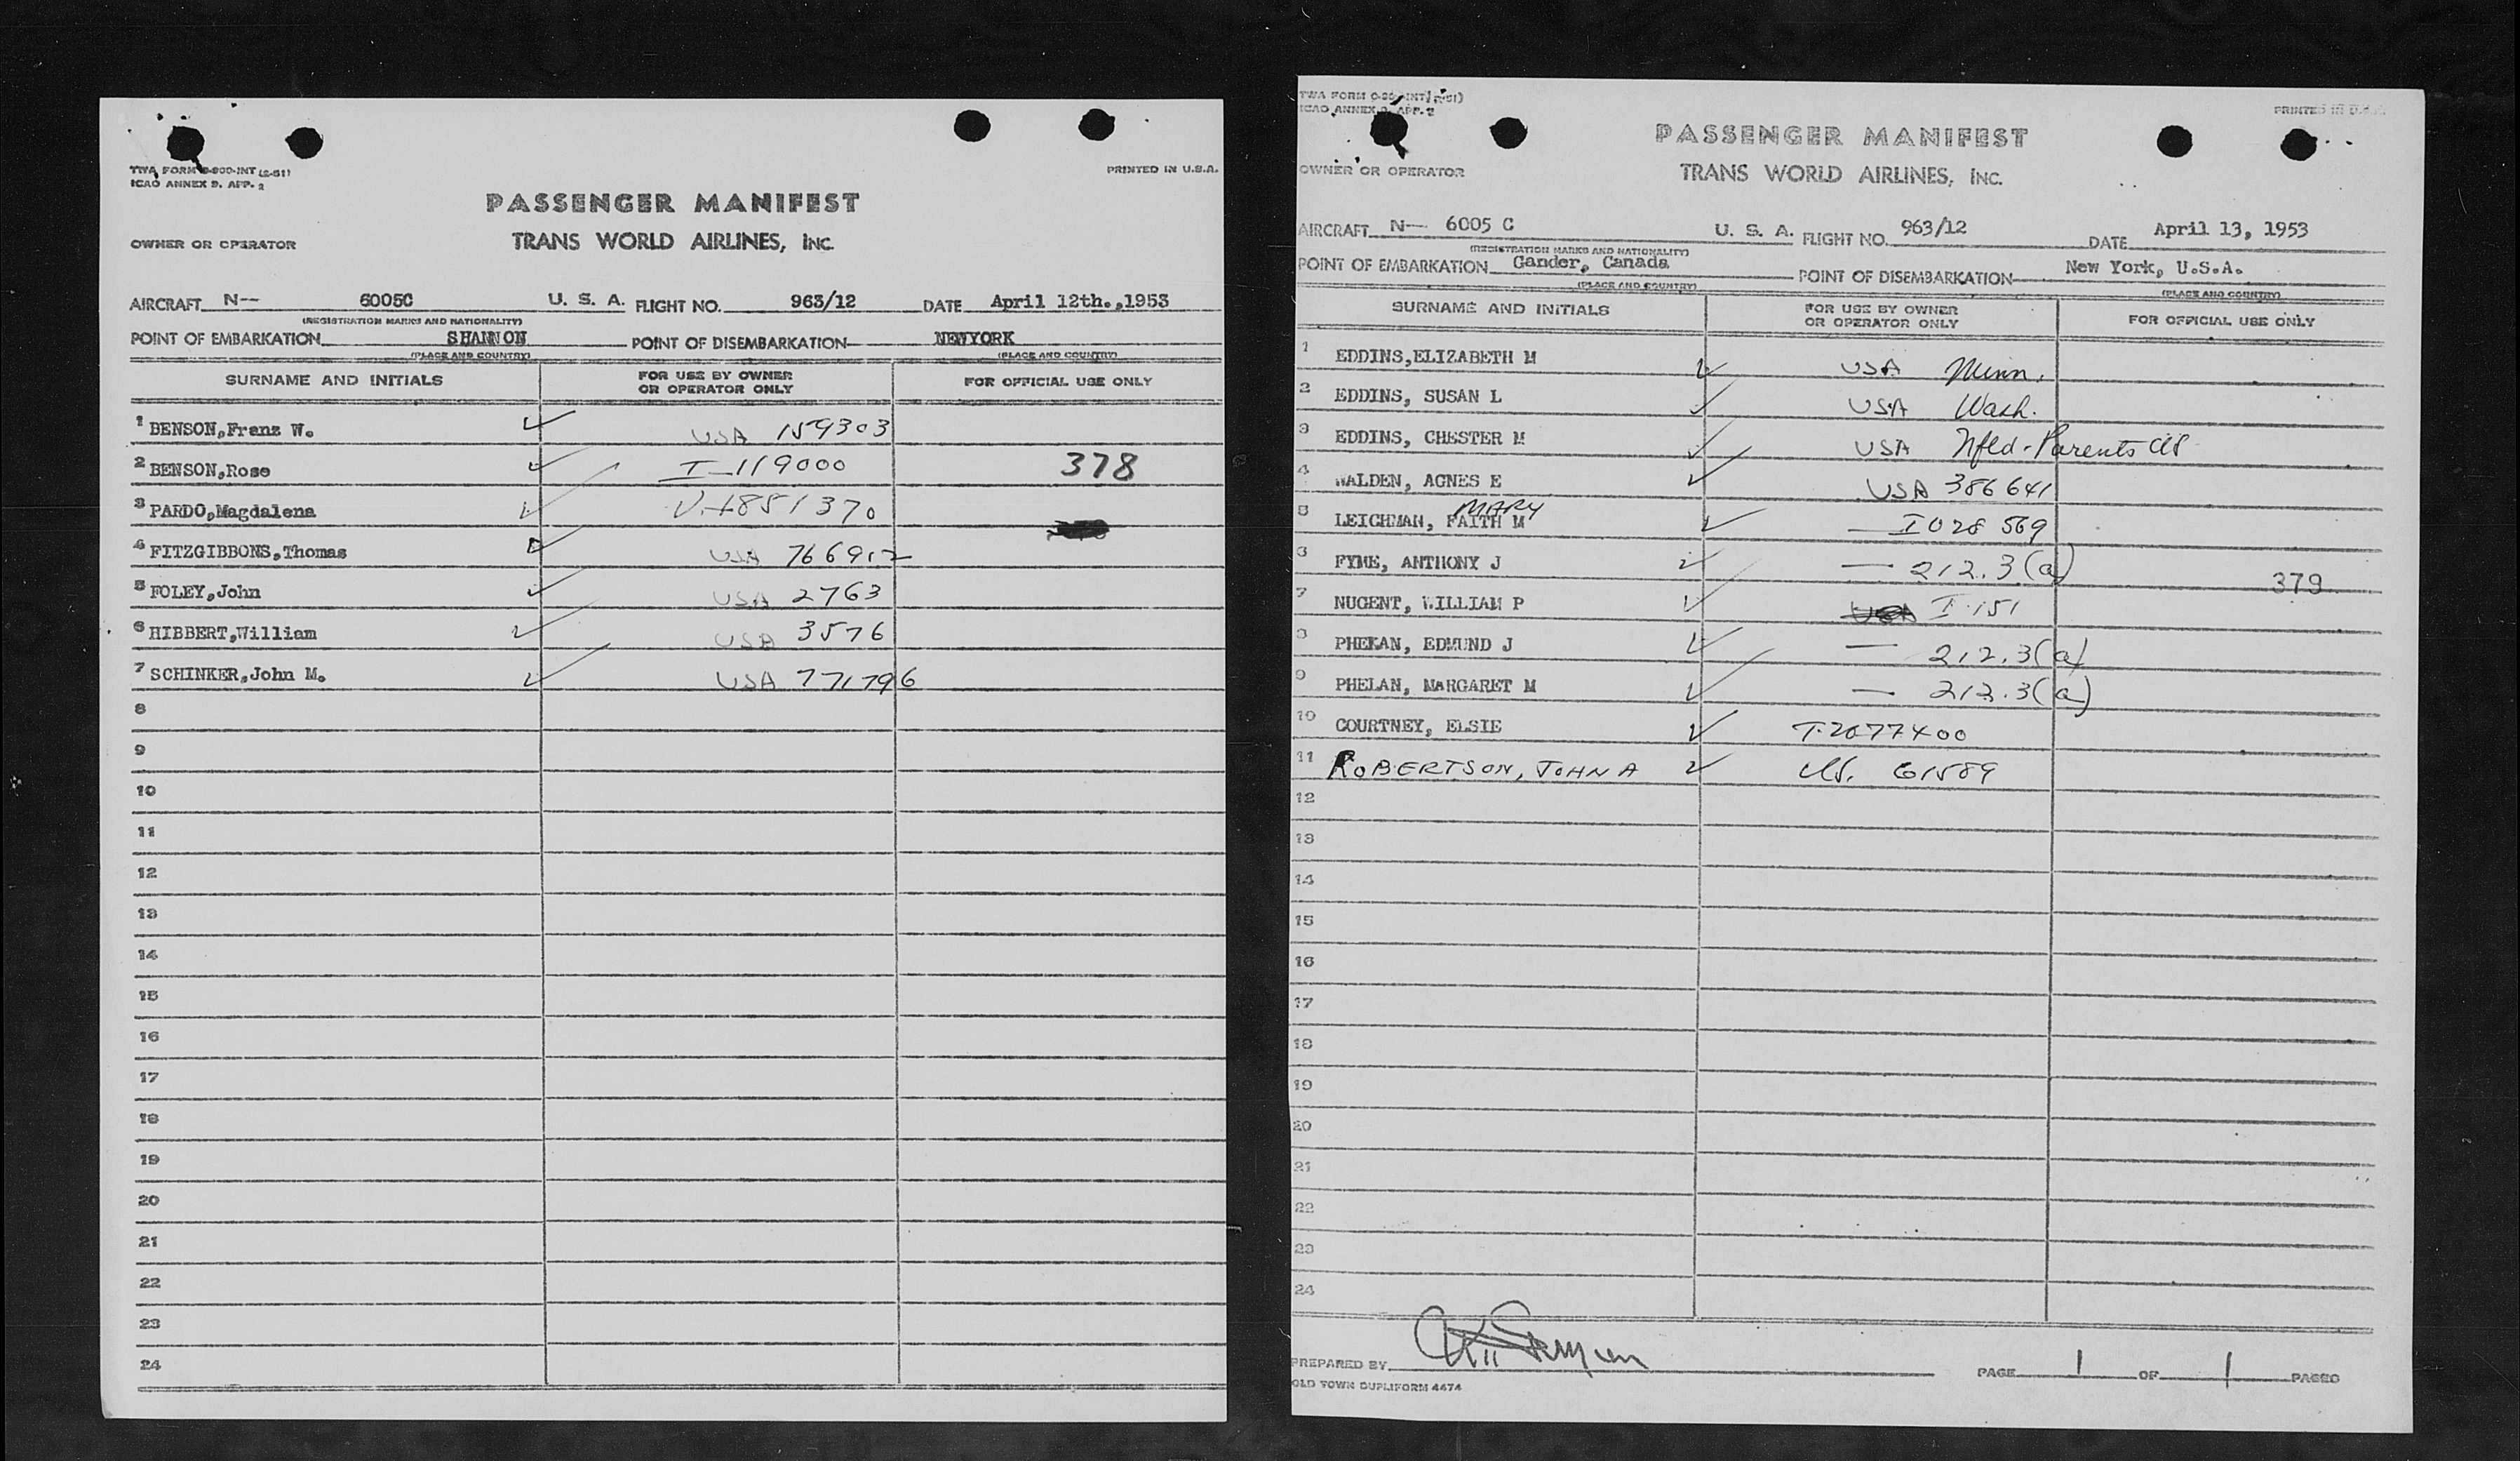 TWA FORM 0-900-INT (2-51)
ICAO ANNEX 9. APP. 2
PRINTED IN U.S.A.
PASSENGER MANIFEST
OWNER OR OPERATOR
TRANS WORLD AIRLINES, INC.
AIRCRAFT N-- 6005C U. S. A. FLIGHT NO. 963/12 DATE April 12th.,1953
(REGISTRATION MARKS AND NATIONALITY)
POINT OF EMBARKATION SHANNON POINT OF DISEMBARKATION NEWYORK
(PLACE AND COUNTRY) (PLACE AND COUNTRY)
SURNAME AND INITIALS FOR USE BY OWNER OR OPERATOR ONLY FOR OFFICIAL USE ONLY
1 BENSON,Franz W. USA 159303
2 BENSON,Rose I-119000 378
3 PARDO,Magdalena V.+851370
4 FITZGIBBONS,Thomas USA 766912
5 FOLEY,John USA 2763
6 HIBBERT,William USA 3576
7 SCHINKER,John M. USA 771796
8
9
10
11
12
13
14
15
16
17
18
19
20
21
22
23
24
TWA FORM 0-900-INT (2-51)
ICAO ANNEX 9. APP. 2
PRINTED IN U.S.A.
PASSENGER MANIFEST
OWNER OR OPERATOR
TRANS WORLD AIRLINES, INC.
AIRCRAFT N-- 6005 C U. S. A. FLIGHT NO. 963/12 DATE April 13, 1953
(REGISTRATION MARKS AND NATIONALITY)
POINT OF EMBARKATION Gander, Canada POINT OF DISEMBARKATION New York, U.S.A.
(PLACE AND COUNTRY) (PLACE AND COUNTRY)
SURNAME AND INITIALS FOR USE BY OWNER OR OPERATOR ONLY FOR OFFICIAL USE ONLY
1 EDDINS,ELIZABETH M USA Minn.
2 EDDINS, SUSAN L USA Wash.
3 EDDINS, CHESTER M USA Nfld-Parents US
4 WALDEN, AGNES E USA 386641
MARY
5 LEICHMAN, FAITH M — I028 569
6 FYME, ANTHONY J — 212.3(a)
379
7 NUGENT, WILLIAM P USA I-151
8 PHEKAN, EDMUND J — 212.3(a)
9 PHELAN, MARGARET M — 212.3(a)
10 COURTNEY, ELSIE T-2077400
11 ROBERTSON, JOHN A US. 61589
12
13
14
15
16
17
18
19
20
21
22
23
24
PREPARED BY PAGE 1 OF 1 PAGES
OLD TOWN DUPLIFORM 4474